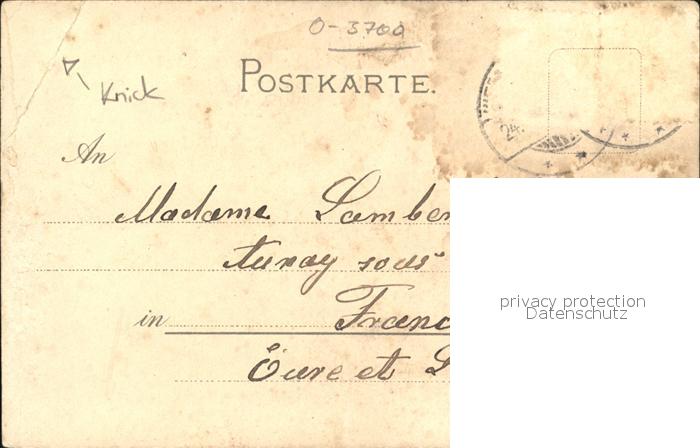 O-3700
Knick
POSTKARTE.
An
Madame Lamber
Aunay sous
in Franc
Eure et L
privacy protection
Datenschutz